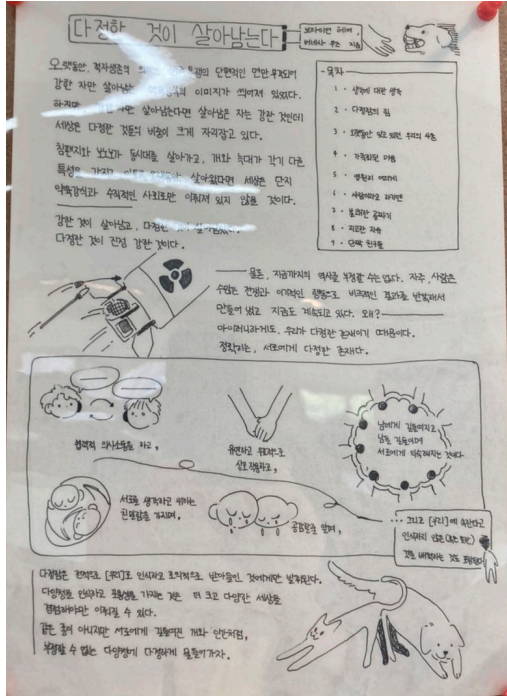 다정한 것이 살아남는다
브라이언 헤어
버네사 우즈 지음
오랫동안, 적자생존의 단편적인 면만 부각되어
강한 자만 살아남는 이미지가 씌여져 있었다.
하지만, 강한 자만 살아남는다면 살아남은 자는 강한 것인데
세상은 다정한 것들의 비율이 크게 자리잡고 있다.
침팬지와 보노보가 동시대를 살아가고, 개와 늑대가 각기 다른
특성을 가지고 살아왔다면 세상은 단지
약육강식과 수직적인 사회로만 이뤄져 있지 않을 것이다.
강한 것이 살아남고, 다정한 것이 살아남았다.
다정한 것이 진정 강한 것이다.
- 목차
1 · 생각에 대한 생각
2 · 다정함의 힘
3 · 오랫동안 잊고 있던 우리의 사촌
4 · 가축화된 마음
5 · 영원히 어리게
6 · 사람이라고 하기엔
7 · 불쾌한 골짜기
8 · 지고한 자유
9 · 단짝 친구들
물론, 지금까지의 역사를 부정할 수는 없다. 자주, 사람은
수많은 전쟁과 이기적인 행동으로 비극적인 결과를 반복해서
만들어 냈고 지금도 계속되고 있다. 왜?
아이러니하게도, 우리가 다정한 존재이기 때문이다.
정확히는, 서로에게 다정한 존재다.
협력적 의사소통을 하고,
유연하고 우호적으로
상호작용하고,
남에게 길들여지고
남을 길들이며
서로에게 익숙해지는 것이다
서로를 생각하고 위하는
친밀감을 가지며,
공감할 줄 알며,
... 그리고 [우리]에 속한다고
인식하지 않은
것을 배척하는 것도 포함된다
다정함은 전적으로 [우리]로 인식하고 호의적으로 받아들인 것에게만 발휘된다.
다양성을 인식하고 포용성을 가지는 것은 더 크고 다양한 세상을
경험해야만 이뤄질 수 있다.
같은 종이 아니지만 서로에게 길들여진 개와 인간처럼,
부정할 수 없는 다양성에 다정하게 물들어가자.